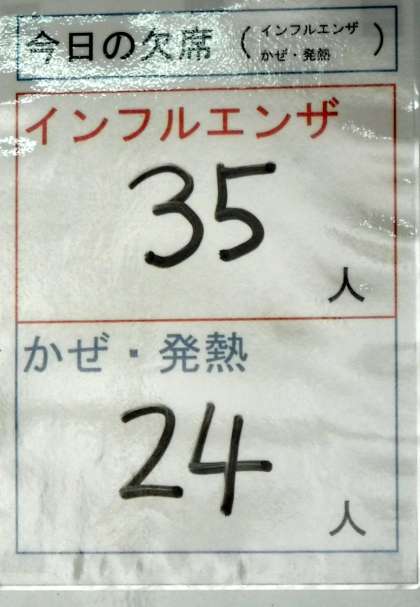 今日の欠席（インフルエンザ
かぜ・発熱）
インフルエンザ
35
人
かぜ・発熱
24
人